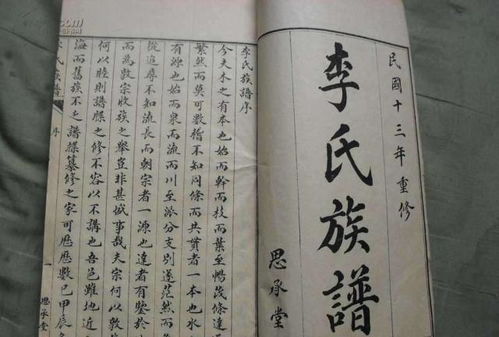 民國十三年重修
李氏族譜
思承堂
李氏族譜序
今夫木之有本也始而幹而枝而葉至暢茂條達
繁然而莫可數循不知同條而共貫者一本也水
有源也始而泉而流而川至派分支別遂茫然而
從追尋不知流長而朝宗者一源也達者有鑒於
而為敦宗收族之舉豈非甚盛事哉夫宗何以敦
何以睦則譜牒之修不容以不講也吾邑雖地近
海而舊族不乏譜牒纂修之家可歷歷數已甲辰
李氏族譜
序
一
思承堂